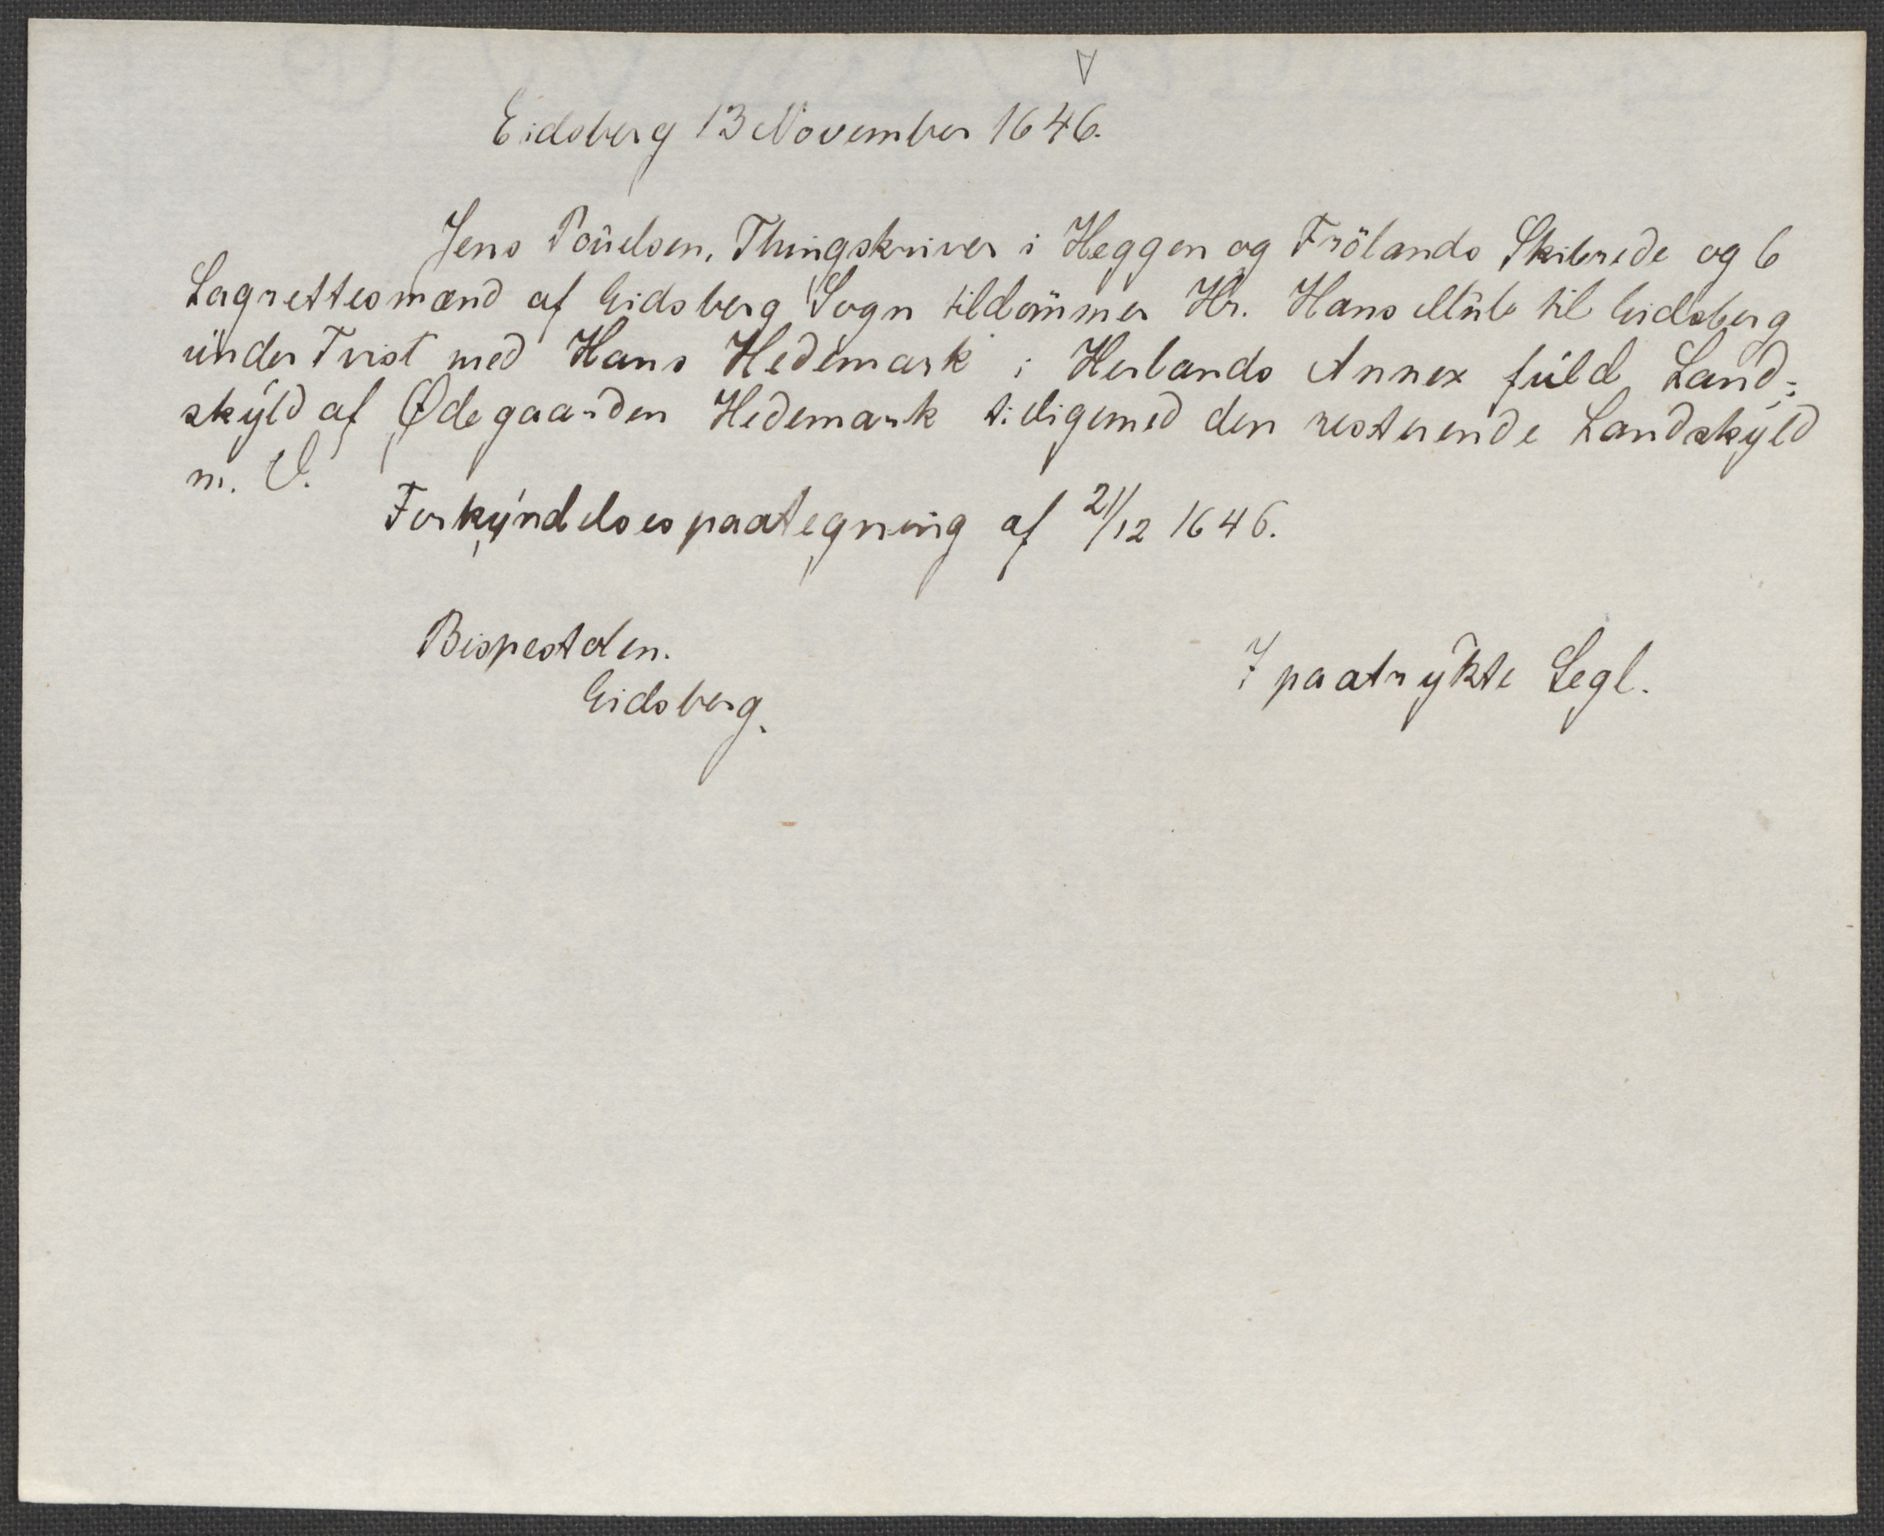 Eidsberg 13 November 1646.
Jens Poŭelsen, Thingskriver i Heggen og Frölands Skibrede og 6
Lagrettesmænd af Eidsberg Sogn tildömmer Hr. Hans til Eidsberg
ŭnder Tvist med Hans Hedemark i Herlands Annex fŭld Land-
skÿld af Ødegaarden Hedemark tilligemed den resterende Landskÿld
m. V.
Forkÿndelsespaategning af 21/12 1646.
Bispestolen.
Eidsberg.
7 paatrykte Segl.